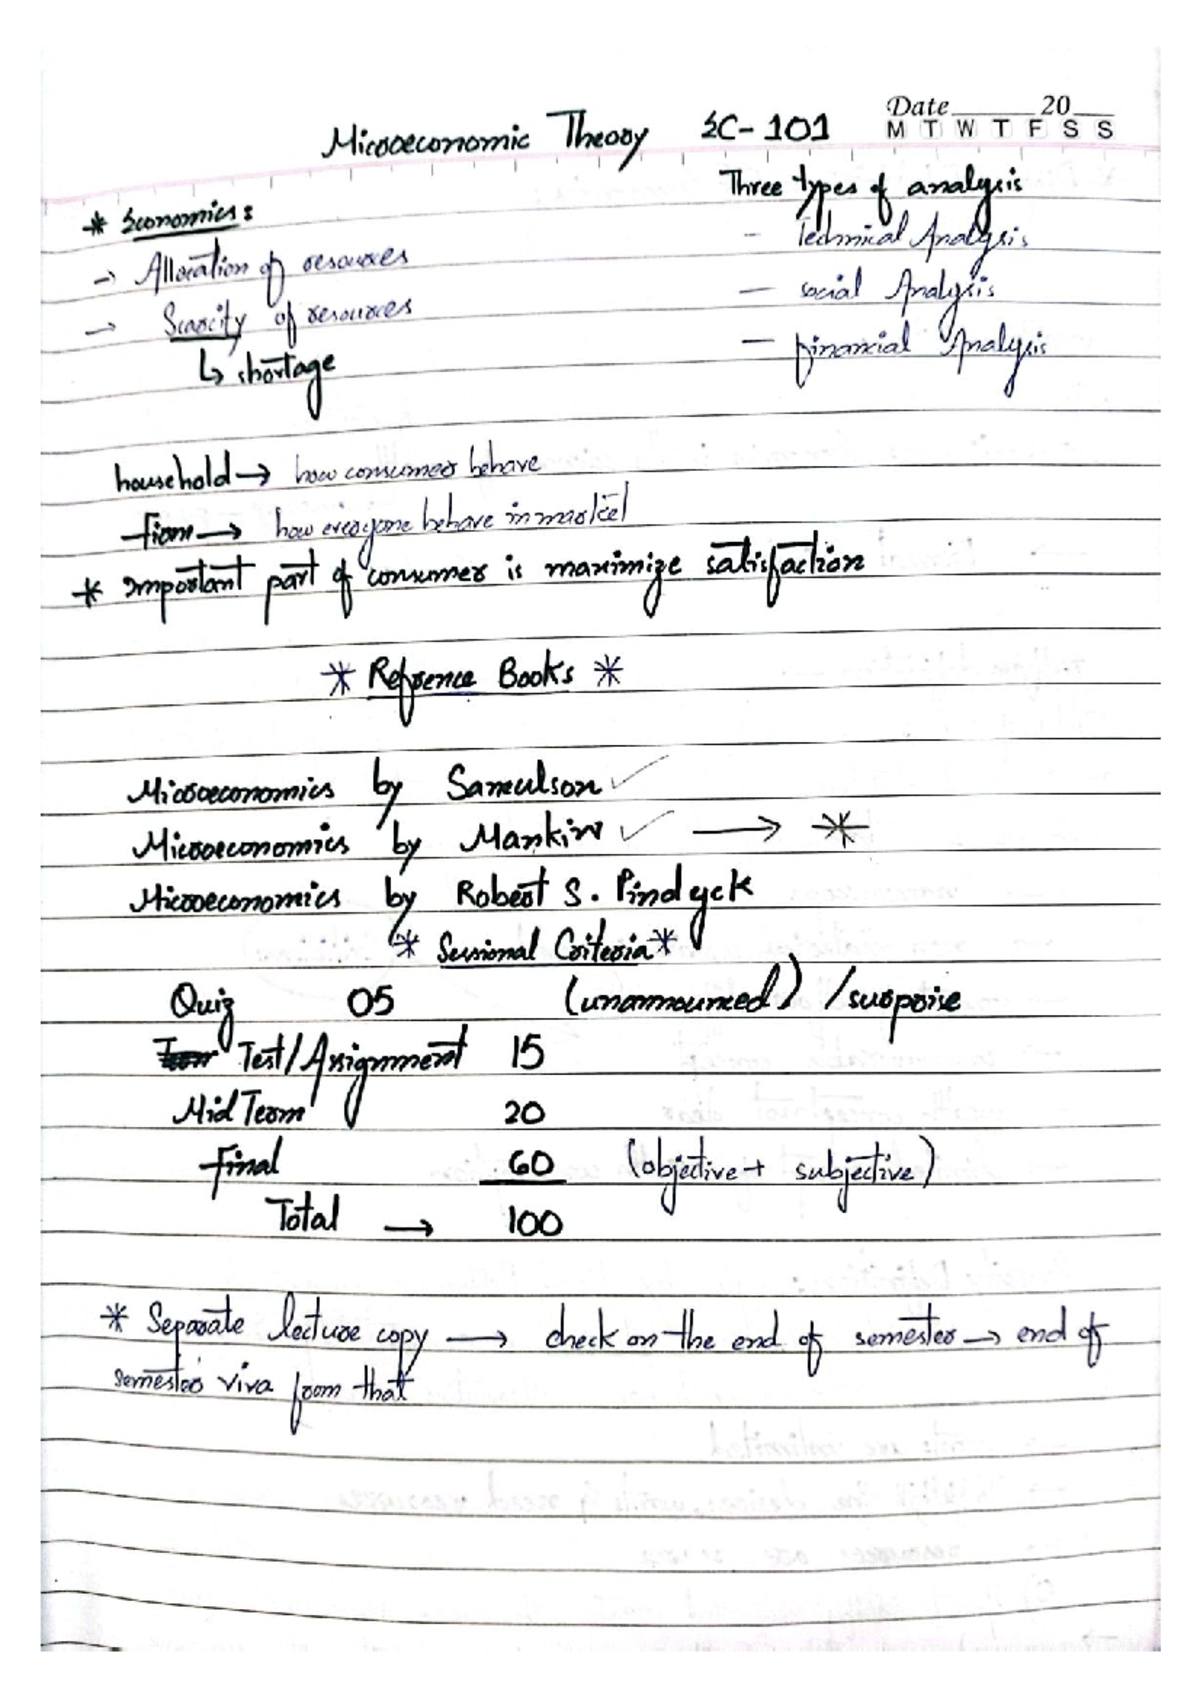 Date 20
Microeconomic Theory EC-101
M T W T F S S
Three types of analysis
* Economics:
- Technical Analysis
→ Allocation of resources
- social Analysis
→ Scarcity of resources
- financial Analysis
↳ shortage
household → how consumer behave
firm → how everyone behave in market
* Important part of consumer is maximize satisfaction
* Refrence Books *
Microeconomics by Samulson ✓
Microeconomics by Mankiw ✓ → *
Microeconomics by Robert S. Pindyck
* Sessional Criteria *
Quiz 05 (unannounced) / surprise
Test/Assignment 15
Mid Term 20
Final 60 (objective + subjective)
Total → 100
* Separate lecture copy → check on the end of semester → end of
semester viva from that